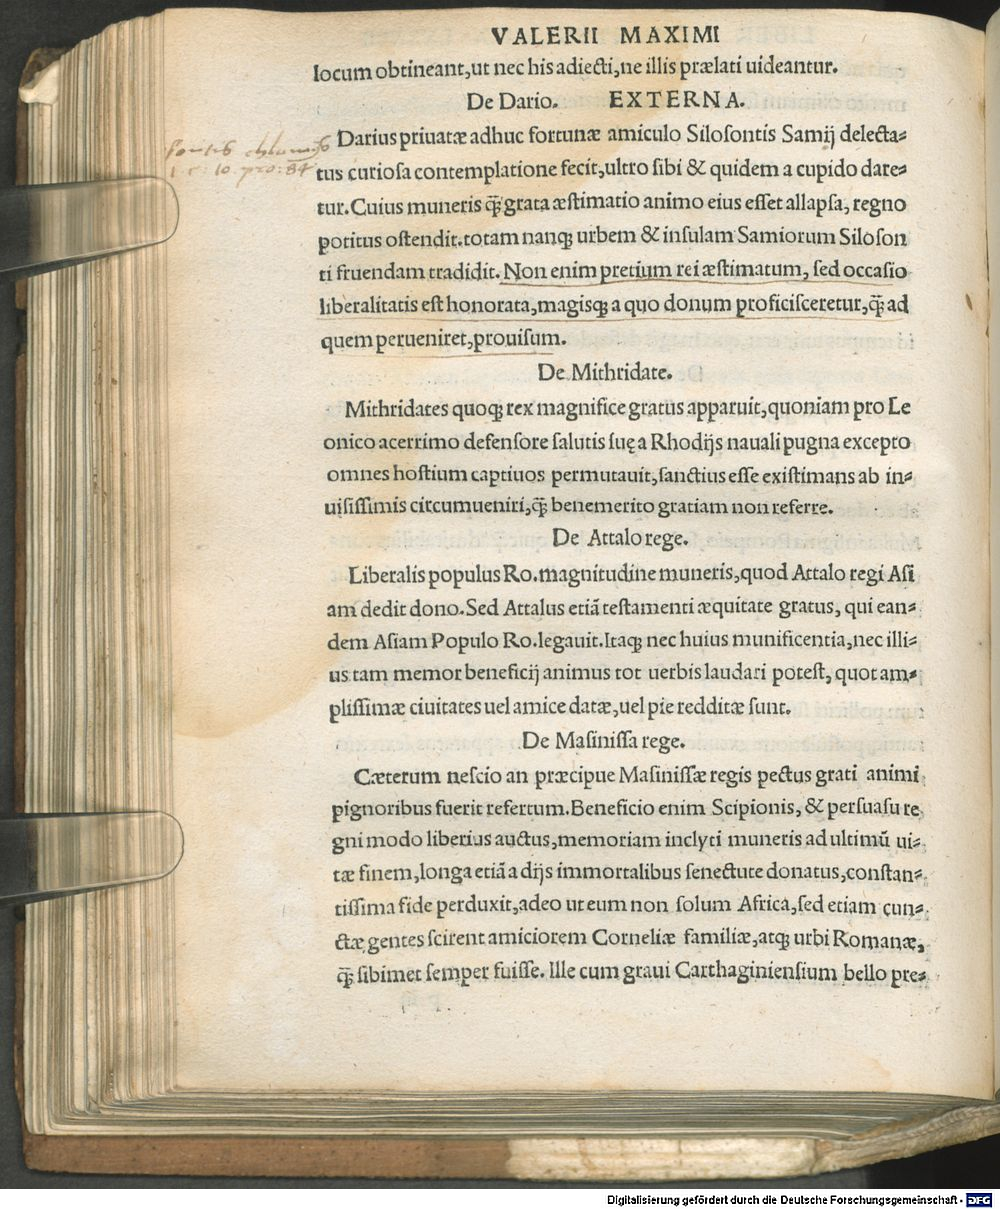 VALERII MAXIMI
locum obtineant,ut nec his adiecti,ne illis prælati uideantur.
De Dario. EXTERNA.
Darius priuatæ adhuc fortunæ amiculo Silosontis Samij delecta-
tus curiosa contemplatione fecit,ultro sibi & quidem a cupido dare-
tur.Cuius muneris q̃ grata æstimatio animo eius esset allapsa, regno
potitus ostendit.totam nanq; urbem & insulam Samiorum Siloson
ti fruendam tradidit. Non enim pretium rei æstimatum, sed occasio
liberalitatis est honorata,magisq; a quo donum proficisceretur,q̃ ad
quem perueniret,prouisum.
De Mithridate.
Mithridates quoq; rex magnifice gratus apparuit,quoniam pro Le
onico acerrimo defensore salutis suę a Rhodijs nauali pugna excepto
omnes hostium captiuos permutauit,sanctius esse existimans ab in-
uisissimis circumueniri,q̃ benemerito gratiam non referre.
De Attalo rege.
Liberalis populus Ro.magnitudine muneris,quod Attalo regi Asi
am dedit dono.Sed Attalus etiã testamenti æquitate gratus, qui ean-
dem Asiam Populo Ro.legauit.Itaq; nec huius munificentia,nec illi-
us tam memor beneficij animus tot uerbis laudari potest, quot am-
plissimæ ciuitates uel amice datæ,uel pie redditæ sunt.
De Masinissa rege.
Cæterum nescio an præcipue Masinissæ regis pectus grati animi
pignoribus fuerit refertum.Beneficio enim Scipionis, & persuasu re
gni modo liberius auctus,memoriam inclyti muneris ad ultimũ ui-
tæ finem,longa etiã a dijs immortalibus senectute donatus,constan-
tissima fide perduxit,adeo ut eum non solum Africa,sed etiam cun-
ctæ gentes scirent amiciorem Corneliæ familiæ,atq; urbi Romanæ,
q̃ sibimet semper fuisse. Ille cum graui Carthaginiensium bello pre-
Digitalisierung gefördert durch die Deutsche Forschungsgemeinschaft - DFG